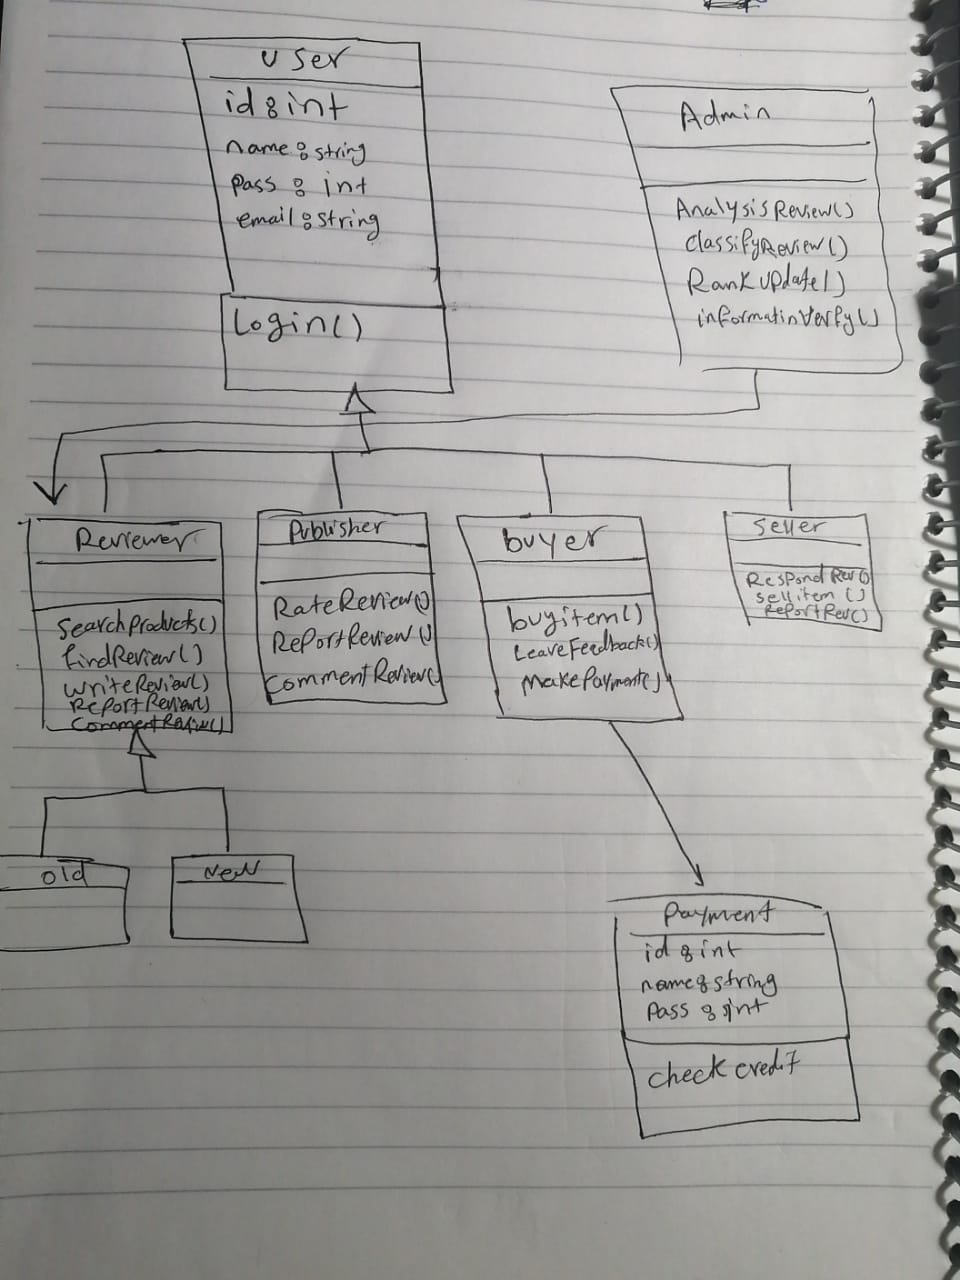 User
id : int
name : string
pass : int
email : string
Login()
Admin
AnalysisReview()
classifyReview()
RankUpdate()
informatinVerfy()
Reviewer
searchproducts()
findReview()
writeReview()
ReportReview()
commentReview()
Publisher
RateReview()
ReportReview()
commentReview()
buyer
buyitem()
LeaveFeedback()
MakePayment()
seller
Respond Rev()
sellitem ()
ReportRev()
old
New
Payment
id : int
name : string
Pass : int
check credit